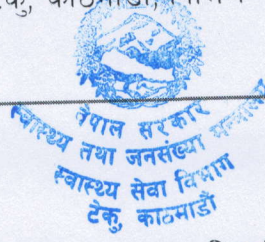 टेकु, काठमाडौं,
नेपाल सरकार
स्वास्थ्य तथा जनसंख्या मन्त्रालय
स्वास्थ्य सेवा विभाग
टेकु, काठमाडौं